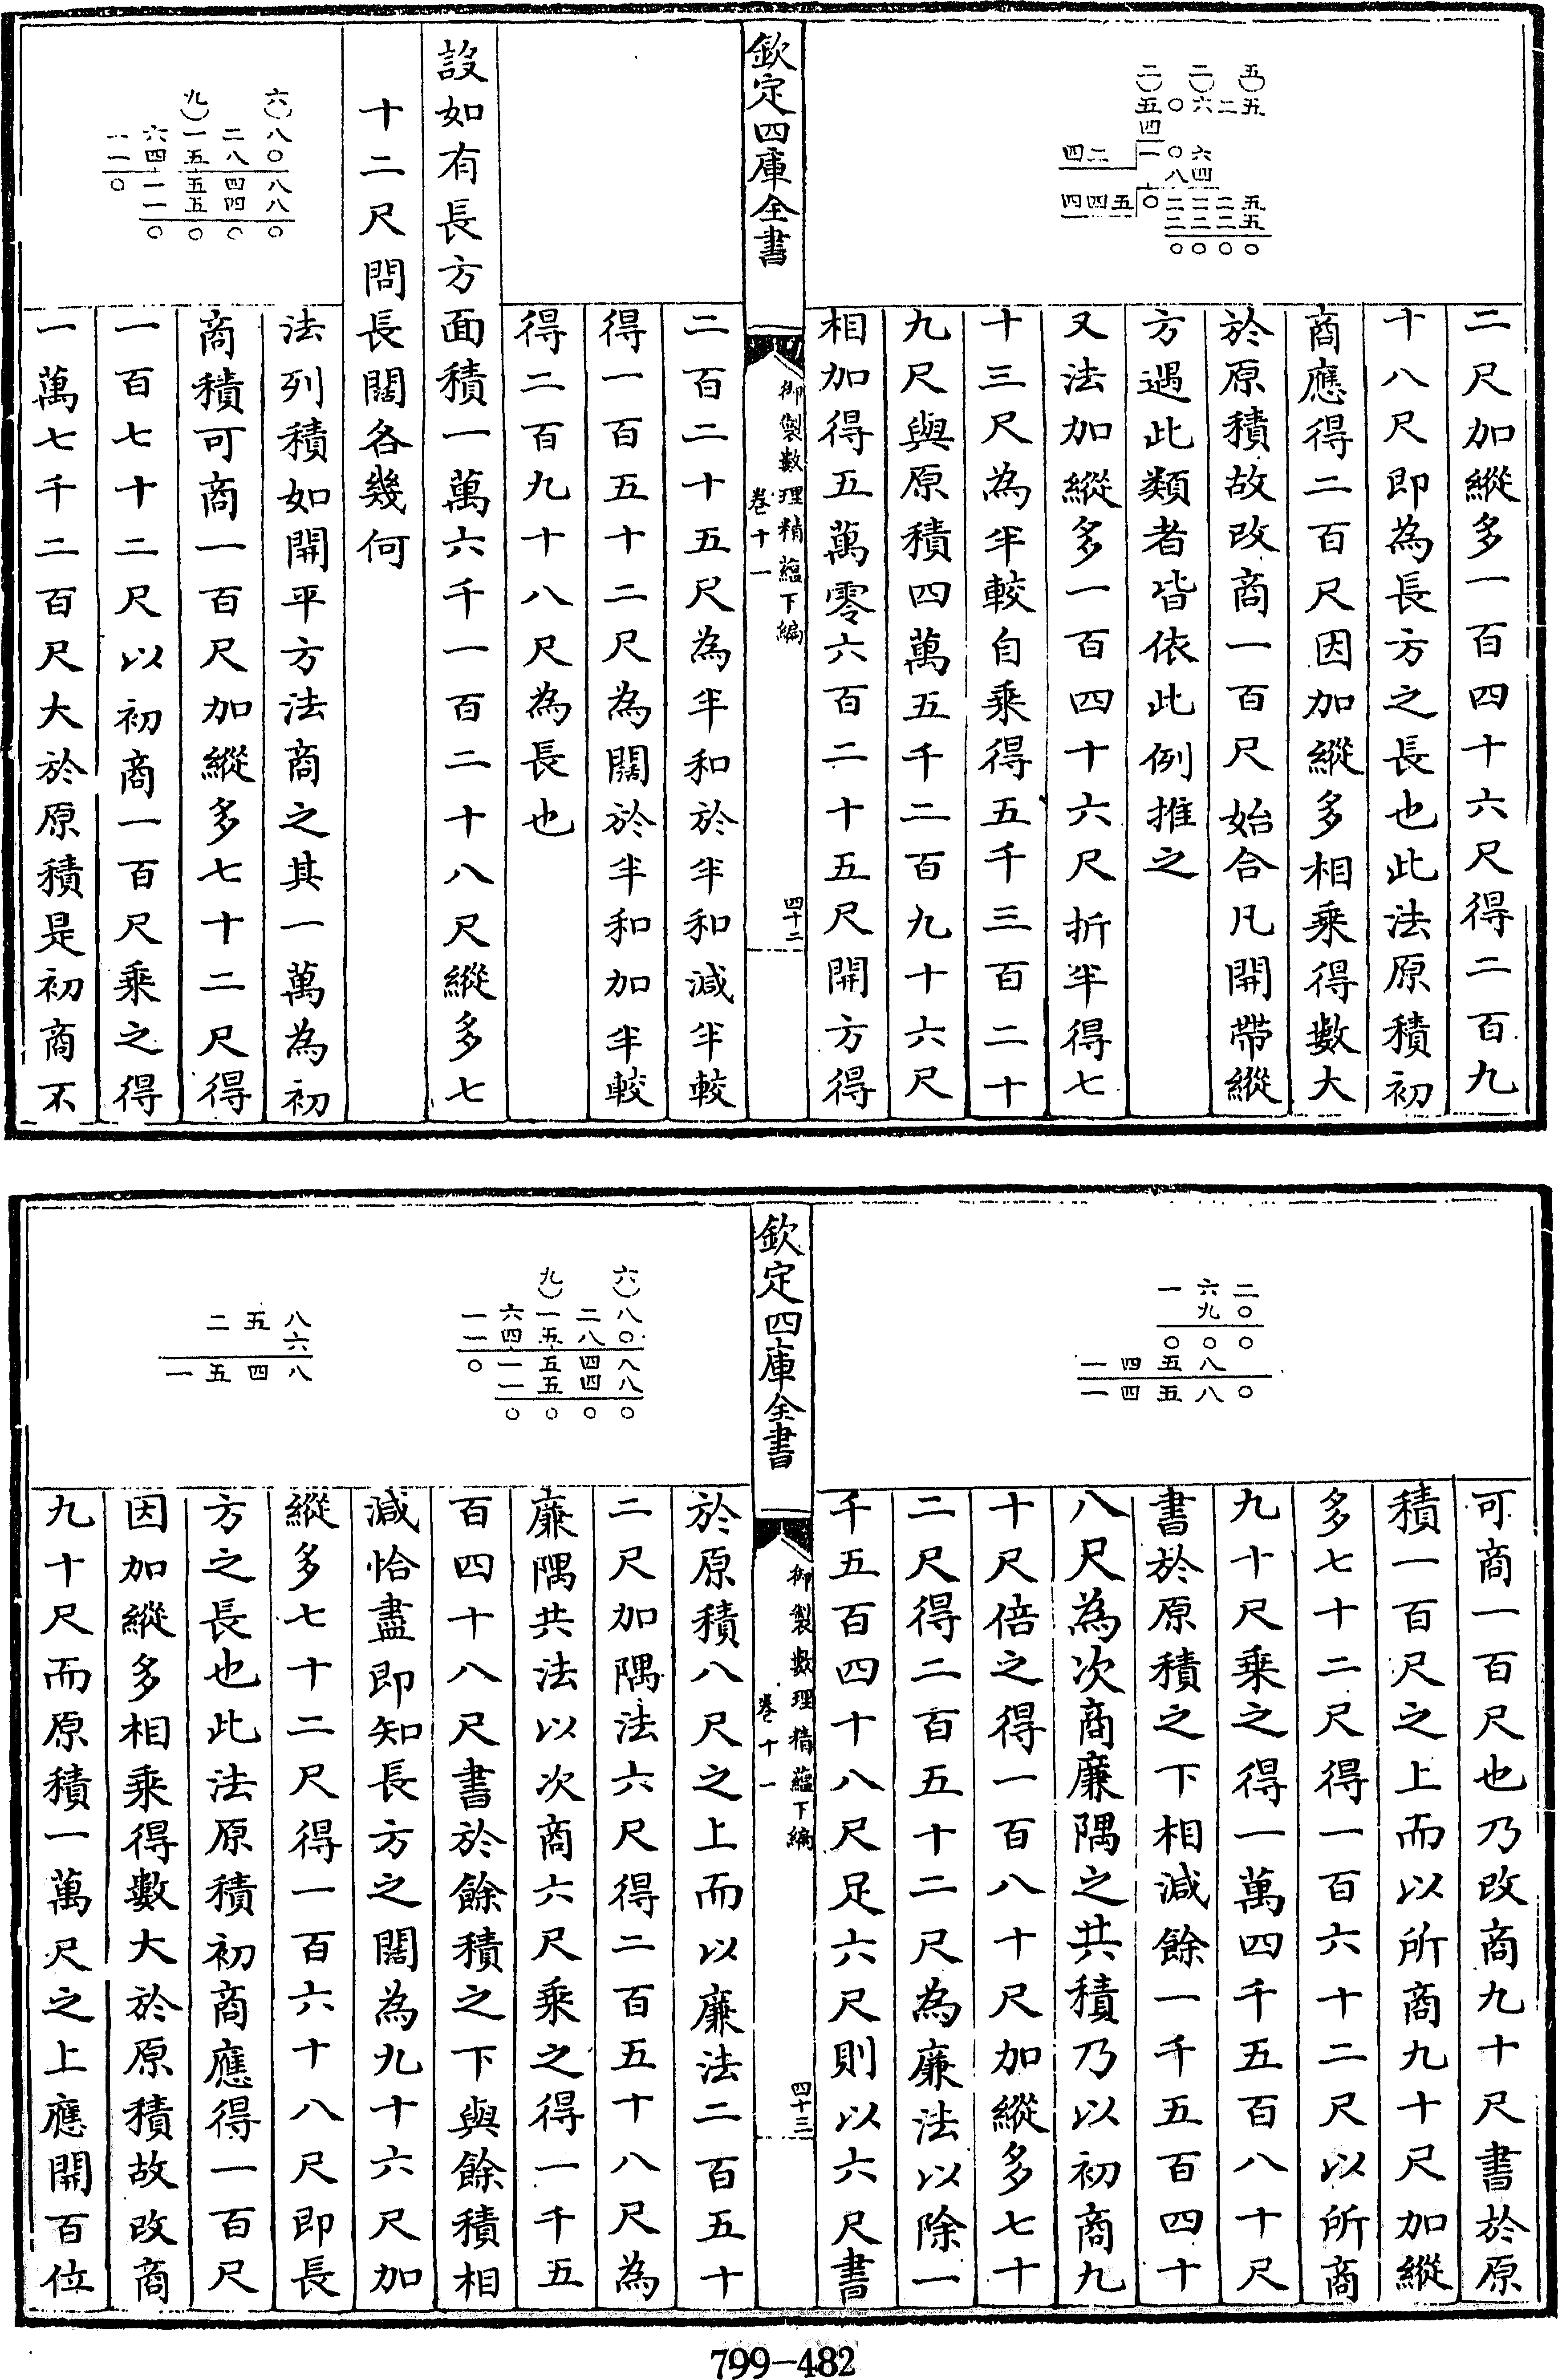 二尺加縱多一百四十六尺得二百九
十八尺即為長方之長也此法原積初
商應得二百尺因加縱多相乘得數大
於原積故改商一百尺始合凡開帶縱
方遇此類者皆依此例推之
又法加縱多一百四十六尺折半得七
十三尺為半較自乘得五千三百二十
九尺與原積四萬五千二百九十六尺
相加得五萬零六百二十五尺開方得
二二五
五〇六二五
四
四二 一〇六
〇八四
四四五 〇二二二五
二二二五
〇〇〇〇
欽定四庫全書
御製數理精蘊下編
卷十一
四十二
二百二十五尺為半和於半和減半較
得一百五十二尺為闊於半和加半較
得二百九十八尺為長也
設如有長方面積一萬六千一百二十八尺縱多七
十二尺問長闊各幾何
法列積如開平方法商之其一萬為初
商積可商一百尺加縱多七十二尺得
一百七十二尺以初商一百尺乘之得
一萬七千二百尺大於原積是初商不
九六
一六一二八
一四五八〇
〇一五四八
一五四八
〇〇〇〇
可商一百尺也乃改商九十尺書於原
積一百尺之上而以所商九十尺加縱
多七十二尺得一百六十二尺以所商
九十尺乘之得一萬四千五百八十尺
書於原積之下相減餘一千五百四十
八尺為次商廉隅之共積乃以初商九
十尺倍之得一百八十尺加縱多七十
二尺得二百五十二尺為廉法以除一
千五百四十八尺足六尺則以六尺書
一六二
九〇
〇〇〇
一四五八
一四五八〇
欽定四庫全書
御製數理精蘊下編
卷十一
四十三
於原積八尺之上而以廉法二百五十
二尺加隅法六尺得二百五十八尺為
廉隅共法以次商六尺乘之得一千五
百四十八尺書於餘積之下與餘積相
減恰盡即知長方之闊為九十六尺加
縱多七十二尺得一百六十八尺即長
方之長也此法原積初商應得一百尺
因加縱多相乘得數大於原積故改商
九十尺而原積一萬尺之上應開百位
九六
一六一二八
一四五八〇
〇一五四八
一五四八
〇〇〇〇
二五八
六
一五四八
799-482